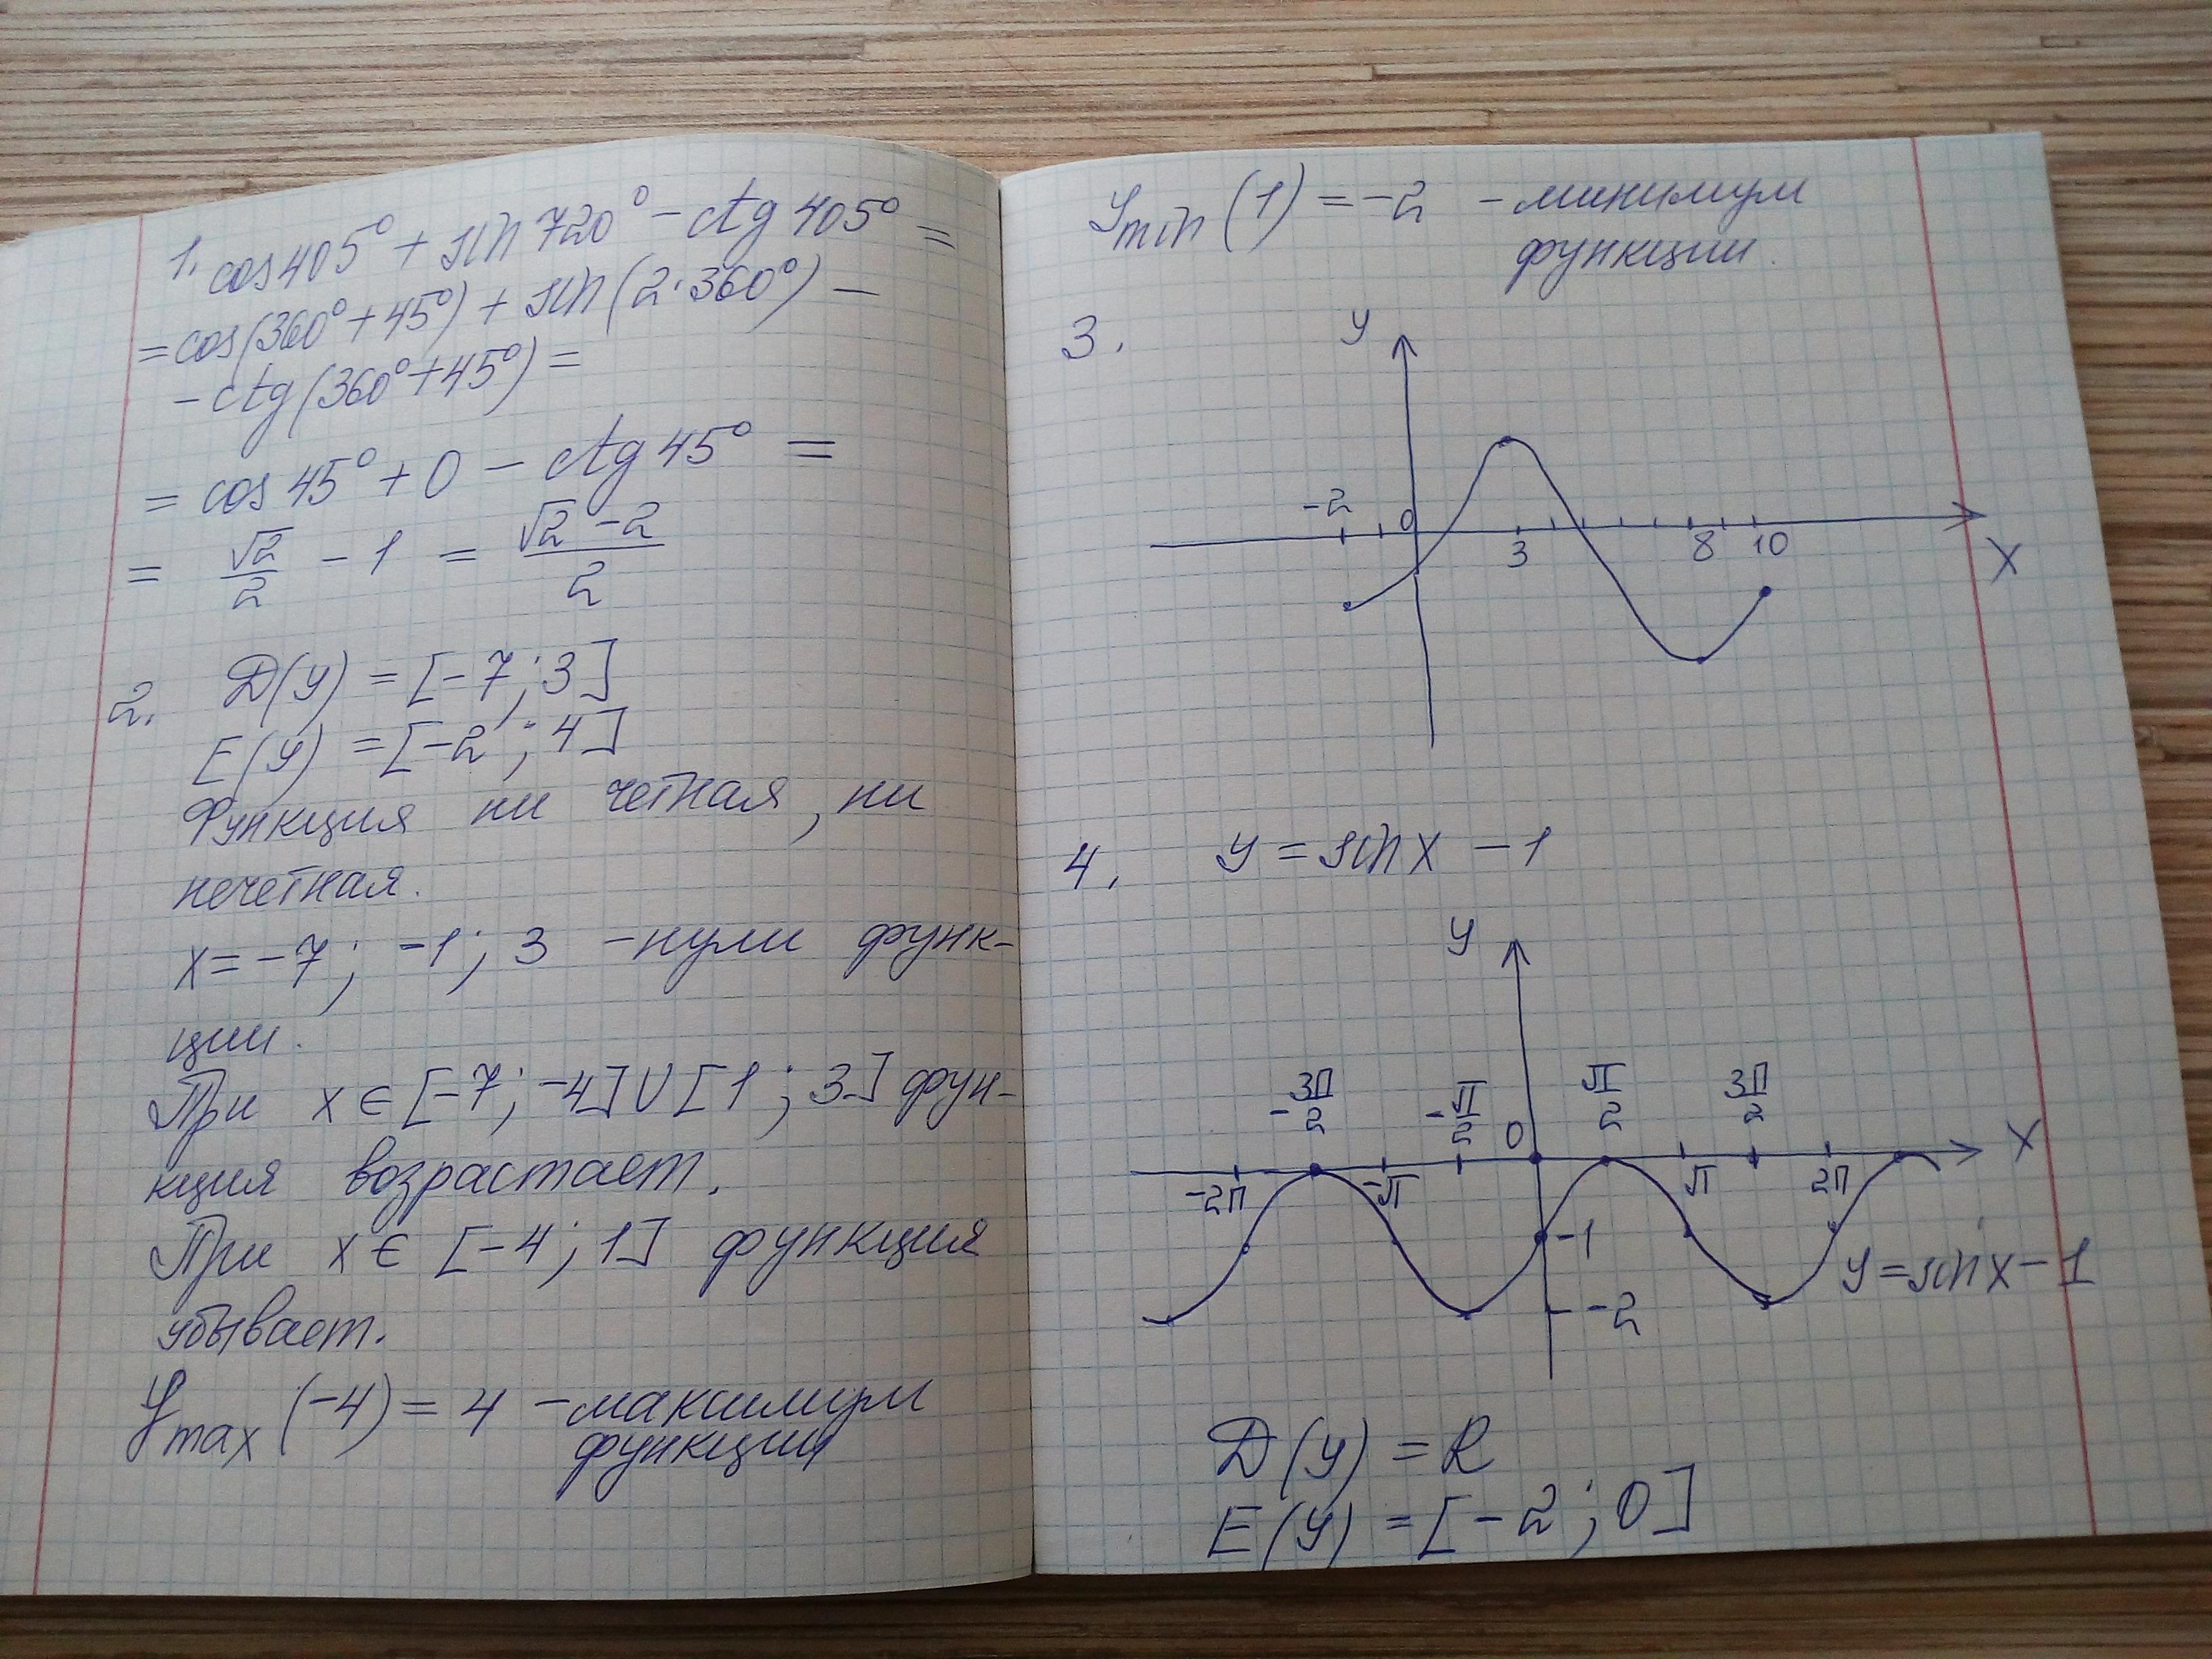 1. cos 405° + sin 720° - ctg 405° =
= cos(360° + 45°) + sin(2·360°) -
- ctg(360° + 45°) =
= cos 45° + 0 - ctg 45° =
= √2/2 - 1 = (√2 - 2)/2
2. D(y) = [-7; 3]
E(y) = [-2; 4]
Функция ни четная, ни
нечетная.
x = -7; -1; 3 - нули функ-
ции.
При x ∈ [-7; -4] U [1; 3] фун-
кция возрастает.
При x ∈ [-4; 1] функция
убывает.
y max (-4) = 4 - максимум
функции
y min (1) = -2 - минимум
функции.
3.
y
-2 0 3 8 10
x
4. y = sin x - 1
y
-3π/2 -π/2 0 π/2 3π/2 x
-2π -π π 2π
-1
y = sin x - 1
-2
D(y) = R
E(y) = [-2; 0]